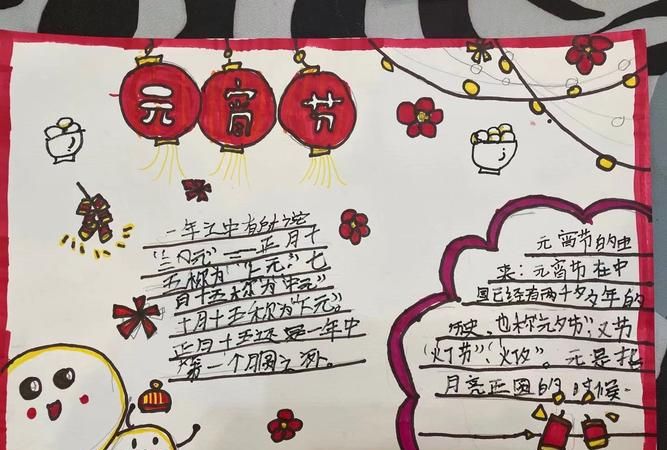 元宵节
一年之中有的说
“三个元”——正月十
五称为“上元”七
月十五称为“中元”
十月十五称为“下元”
正月十五还是一年中
第一个月圆之
元宵节的由
来：元宵节在中
国已经有两千多年的
历史，也称元夕节、又节
“灯节”
元是指
月亮正圆的时候.